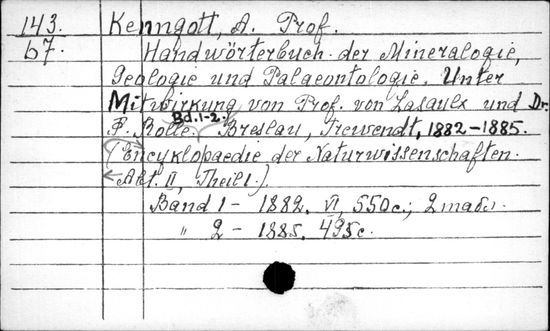 143. Kenngott, A. Prof.
67. Handwörterbuch der Mineralogie,
Geologie und Palaeontologie. Unter
Mitwirkung von Prof. von Lasaulx und Dr.
F. Rolle. Bd. 1-2. Breslau, Trewendt, 1882-1885.
(Encyklopaedie der Naturwissenschaften.
Abt. II, Theil 1.)
Band 1 - 1882. VI, 550 c.;
" 2 - 1885. 495 c.